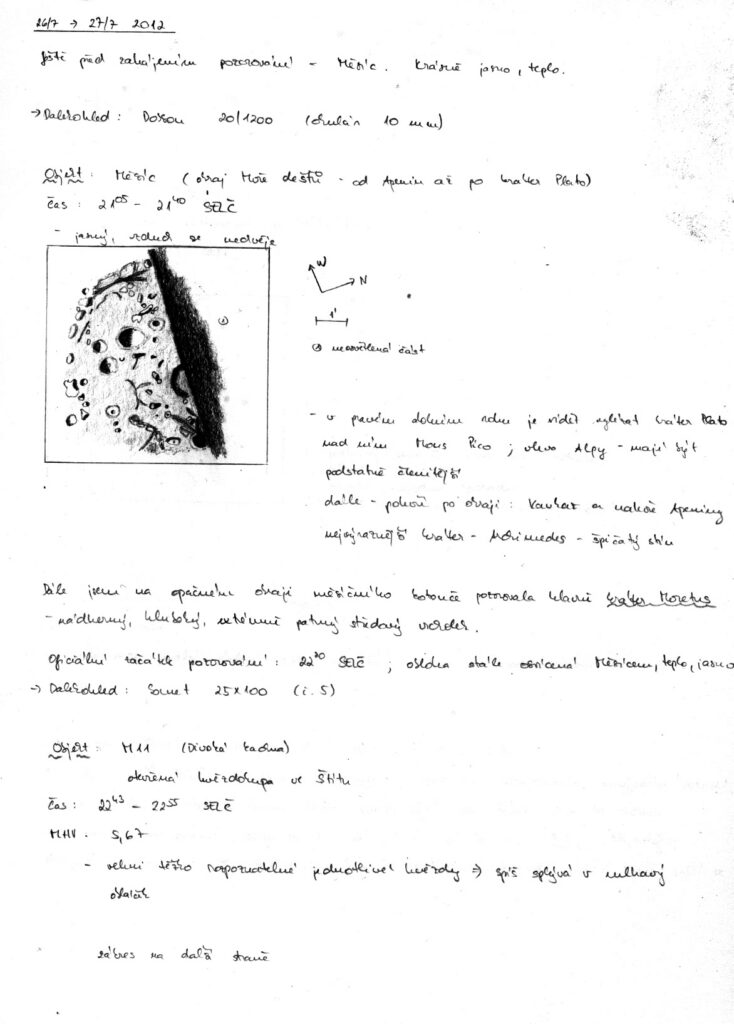 26/7 → 27/7 2012
Ještě před zahájením pozorování - Měsíc. Krásně jasno, teplo.
→ Dalekohled: Dobson 20/1200 (okulár 10 mm)
Objekt: Měsíc (okraj Moře dešťů - od Apenin až po kráter Plato)
čas: 21⁰⁵ - 21⁴⁰ SELČ
- jasný, vzduch se nechvěje
W
N
1'
neosvětlená část
- v pravém dolním rohu je vidět vylézat kráter Plato
nad ním Mons Pico; vlevo Alpy - mají být
podstatně členitější
dále - pohoří po okraji: Kavkaz a nahoře Apeniny
nejvýraznější kráter - Archimedes - špičatý stín
Dále jsem na opačném okraji měsíčního kotouče pozorovala hlavně kráter Moretus
- nádherný, hluboký, extémně patrný středový vrcholek.
Oficiální začátek pozorování: 22³⁰ SELČ; obloha stále osvícená Měsícem, teplo, jasno
→ Dalekohled: Somet 25x100 (č. 5)
Objekt: M11 (Divoká kachna)
otevřená hvězdokupa ve Štítu
čas: 22⁴³ - 22⁵⁵ SELČ
MHV: 5,67
- velmi těžko rozpoznatelné jednotlivé hvězdy ⇒ spíš splývá v mlhavý
obláček
zákres na další straně